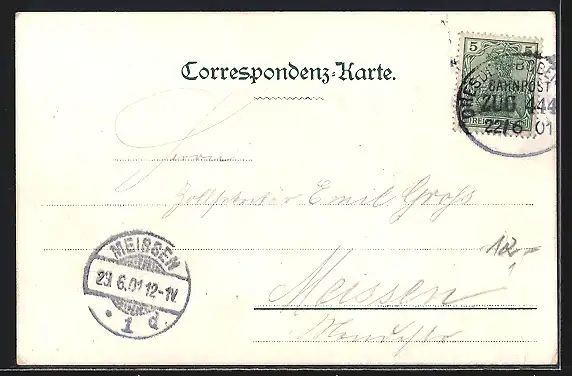 Correspondenz-Karte.
5 5
DRESDEN BODEN
BAHNPOST
ZUG 444
22/6 01
REICHSPOST
Herrn
Zollsekretär Emil Groß
Meissen
MEISSEN
23.6.01.12-1V.
1 d